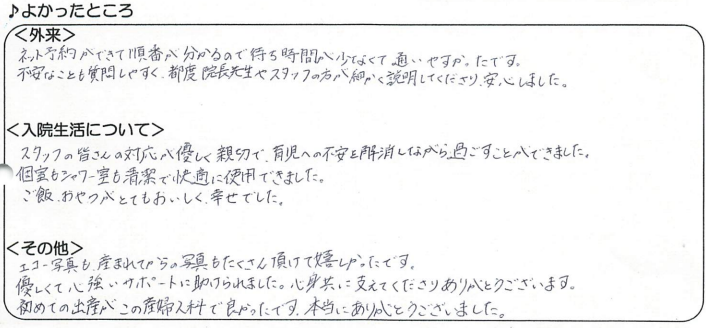 ♪よかったところ
＜外来＞
ネット予約ができて順番が分かるので待ち時間が少なくて通いやすかったです。
不安なことも質問しやすく、都度院長先生やスタッフの方が細かく説明してくださり、安心しました。
＜入院生活について＞
スタッフの皆さんの対応が優しく親切で、育児への不安を解消しながら過ごすことができました。
個室もシャワー室も清潔で快適に使用できました。
ご飯、おやつがとてもおいしく、幸せでした。
＜その他＞
エコー写真も、産まれてからの写真もたくさん頂けて嬉しかったです。
優しくて心強いサポートに助けられました。心身共に支えてくださりありがとうございます。
初めての出産がこの産婦人科で良かったです。本当にありがとうございました。